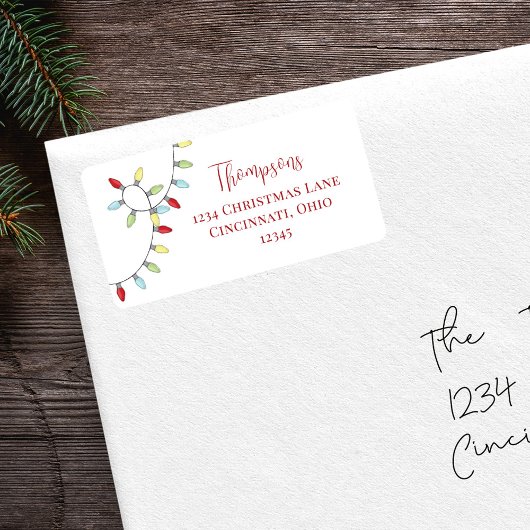 Thompsons
1234 Christmas Lane
Cincinnati, Ohio
12345
The
1234